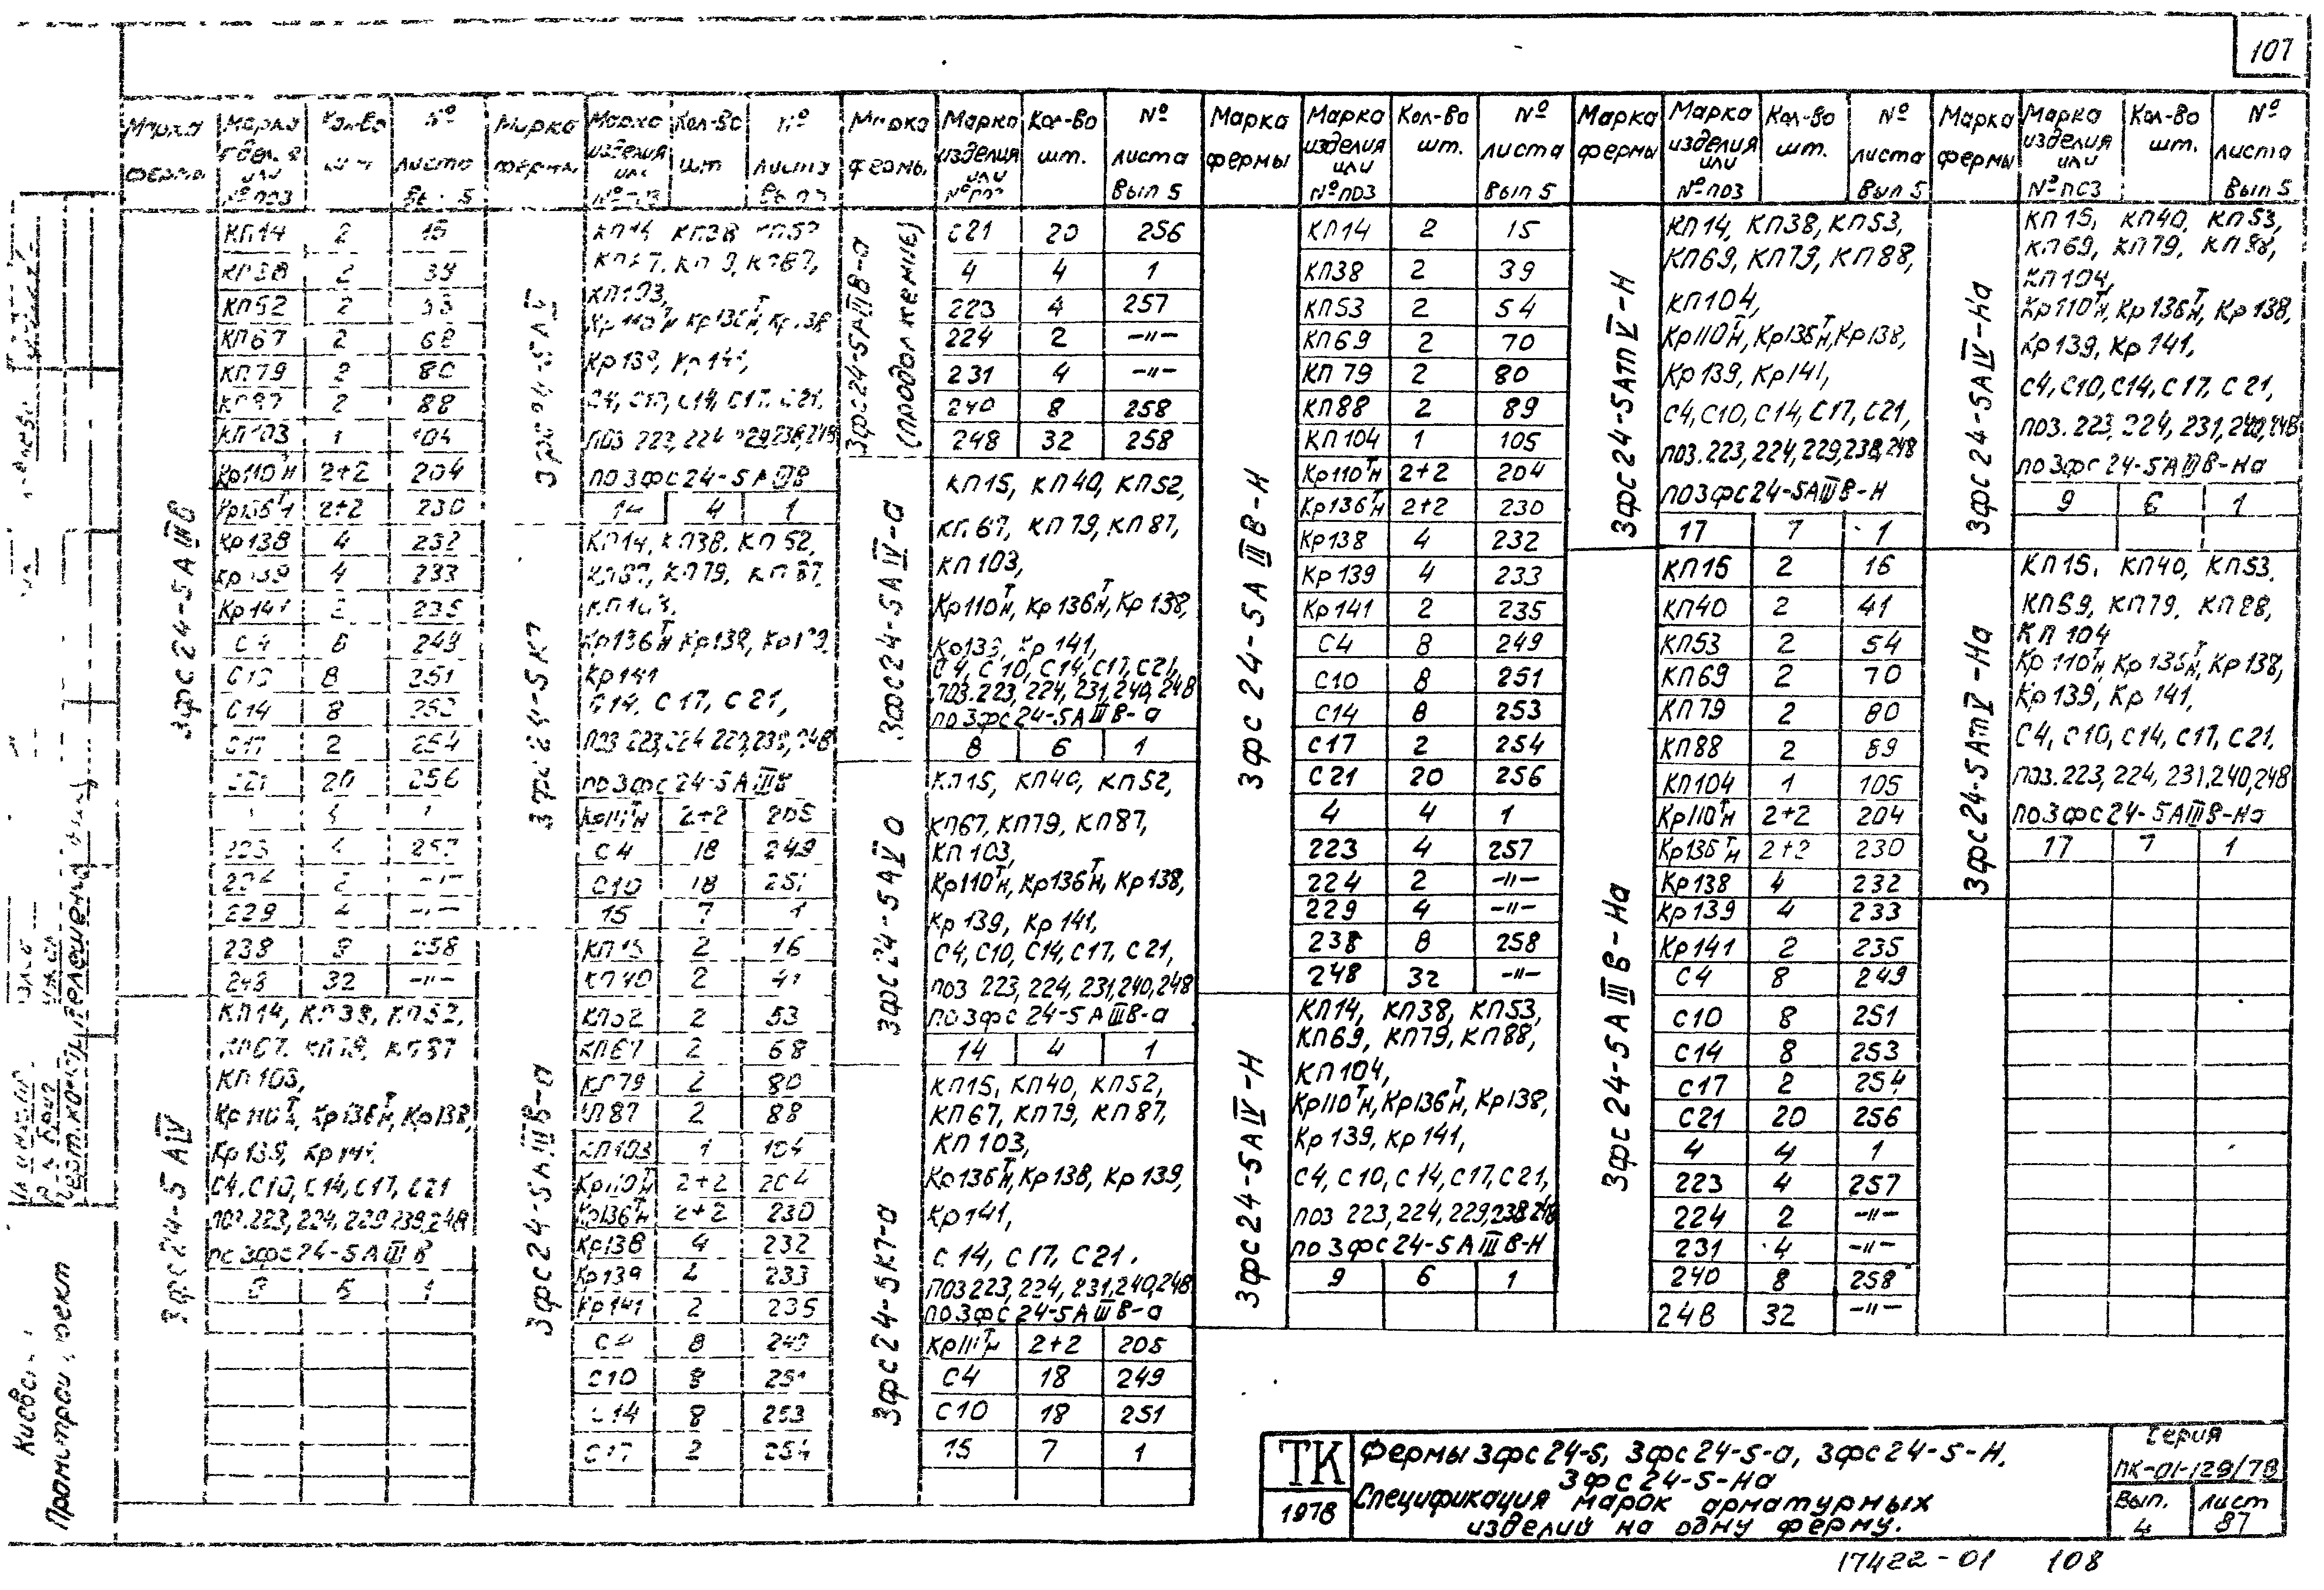 107
Марка фермы | Марка изделия или № поз | Кол-во шт. | № листа Вып 5
3фс24-5АIIIв
КП14 2 15
КП38 2 39
КП52 2 53
КП67 2 68
КП79 2 80
КП87 2 88
КП103 1 104
Кр110тн 2+2 204
Кр136тн 2+2 230
Кр138 4 232
Кр139 4 233
Кр141 2 235
С4 8 249
С10 8 251
С14 8 253
С17 2 254
С21 20 256
223 4 257
224 2 -"-
229 4 -"-
238 8 258
248 32 -"-
3фс24-5АIV
КП14, КП38, КП52,
КП67, КП79, КП87
КП103,
Кр110тн, Кр136тн, Кр138,
Кр139, Кр141,
С4, С10, С14, С17, С21
поз. 223, 224, 229, 238, 248
по 3фс24-5АIIIв
6 1
Марка фермы | Марка изделия или № поз | Кол-во шт | № листа Вып 5
3фс24-5АV
КП14, КП38, КП52
КП67, КП79, КП87,
КП103,
Кр110тн, Кр136тн, Кр138
Кр139, Кр141,
С4, С10, С14, С17, С21,
поз 223, 224, 229, 238, 248
по 3фс24-5АIIIв
14 4 1
3фс24-5К7
КП14, КП38, КП52,
КП67, КП79, КП87,
КП103,
Кр136тн, Кр138, Кр139,
Кр141
С14, С17, С21,
поз 223, 224, 229, 238, 248
по 3фс24-5АIIIв
Кр111тн 2+2 205
С4 18 249
С10 18 251
15 7 1
3фс24-5АIIIв-а
КП15 2 16
КП40 2 41
КП52 2 53
КП67 2 68
КП79 2 80
КП87 2 88
КП103 1 104
Кр110тн 2+2 204
Кр136тн 2+2 230
Кр138 4 232
Кр139 4 233
Кр141 2 235
С4 8 249
С10 8 251
С14 8 253
С17 2 254
Марка фермы | Марка изделия или № поз | Кол-во шт. | № листа Вып 5
3фс24-5АIIIв-а (продолжение)
С21 20 256
4 4 1
223 4 257
224 2 -"-
231 4 -"-
240 8 258
248 32 258
3фс24-5АIV-а
КП15, КП40, КП52,
КП67, КП79, КП87,
КП103,
Кр110тн, Кр136тн, Кр138,
Кр139, Кр141,
С4, С10, С14, С17, С21,
поз. 223, 224, 231, 240, 248
по 3фс24-5АIIIв-а
8 6 1
3фс24-5АV а
КП15, КП40, КП52,
КП67, КП79, КП87,
КП103,
Кр110тн, Кр136тн, Кр138,
Кр139, Кр141,
С4, С10, С14, С17, С21,
поз 223, 224, 231, 240, 248
по 3фс24-5АIIIв-а
14 4 1
3фс24-5К7-а
КП15, КП40, КП52,
КП67, КП79, КП87,
КП103,
Кр136тн, Кр138, Кр139,
Кр141,
С14, С17, С21.
поз 223, 224, 231, 240, 248
по 3фс24-5АIIIв-а
Кр111тн 2+2 205
С4 18 249
С10 18 251
15 7 1
Марка фермы | Марка изделия или № поз | Кол-во шт. | № листа Вып 5
3фс24-5АIIIв-Н
КП14 2 15
КП38 2 39
КП53 2 54
КП69 2 70
КП79 2 80
КП88 2 89
КП104 1 105
Кр110тн 2+2 204
Кр136тн 2+2 230
Кр138 4 232
Кр139 4 233
Кр141 2 235
С4 8 249
С10 8 251
С14 8 253
С17 2 254
С21 20 256
4 4 1
223 4 257
224 2 -"-
229 4 -"-
238 8 258
248 32 -"-
3фс24-5АIV-Н
КП14, КП38, КП53,
КП69, КП79, КП88,
КП104,
Кр110тн, Кр136тн, Кр138,
Кр139, Кр141,
С4, С10, С14, С17, С21,
поз 223, 224, 229, 238, 248
по 3фс24-5АIIIв-Н
9 6 1
Марка фермы | Марка изделия или № поз | Кол-во шт. | № листа Вып 5
3фс24-5АтV-Н
КП14, КП38, КП53,
КП69, КП79, КП88,
КП104,
Кр110тн, Кр136тн, Кр138,
Кр139, Кр141,
С4, С10, С14, С17, С21,
поз. 223, 224, 229, 238, 248
по 3фс24-5АIIIв-Н
17 7 1
3фс24-5АIIIв-На
КП15 2 16
КП40 2 41
КП53 2 54
КП69 2 70
КП79 2 80
КП88 2 89
КП104 1 105
Кр110тн 2+2 204
Кр136тн 2+2 230
Кр138 4 232
Кр139 4 233
Кр141 2 235
С4 8 249
С10 8 251
С14 8 253
С17 2 254
С21 20 256
4 4 1
223 4 257
224 2 -"-
231 4 -"-
240 8 258
248 32 -"-
Марка фермы | Марка изделия или № поз | Кол-во шт. | № листа Вып 5
3фс24-5АIV-На
КП15, КП40, КП53,
КП69, КП79, КП88,
КП104,
Кр110тн, Кр136тн, Кр138,
Кр139, Кр141,
С4, С10, С14, С17, С21,
поз. 223, 224, 231, 240, 248
по 3фс24-5АIIIв-На
9 6 1
3фс24-5АтV-На
КП15, КП40, КП53,
КП69, КП79, КП88,
КП104
Кр110тн, Кр136тн, Кр138,
Кр139, Кр141,
С4, С10, С14, С17, С21,
поз. 223, 224, 231, 240, 248
по 3фс24-5АIIIв-На
17 7 1
ТК
1978
Фермы 3фс24-5, 3фс24-5-а, 3фс24-5-Н,
3фс24-5-На
Спецификация марок арматурных
изделий на одну ферму.
Серия
ПК-01-129/78
Вып. 4
Лист 87
17422-01 108